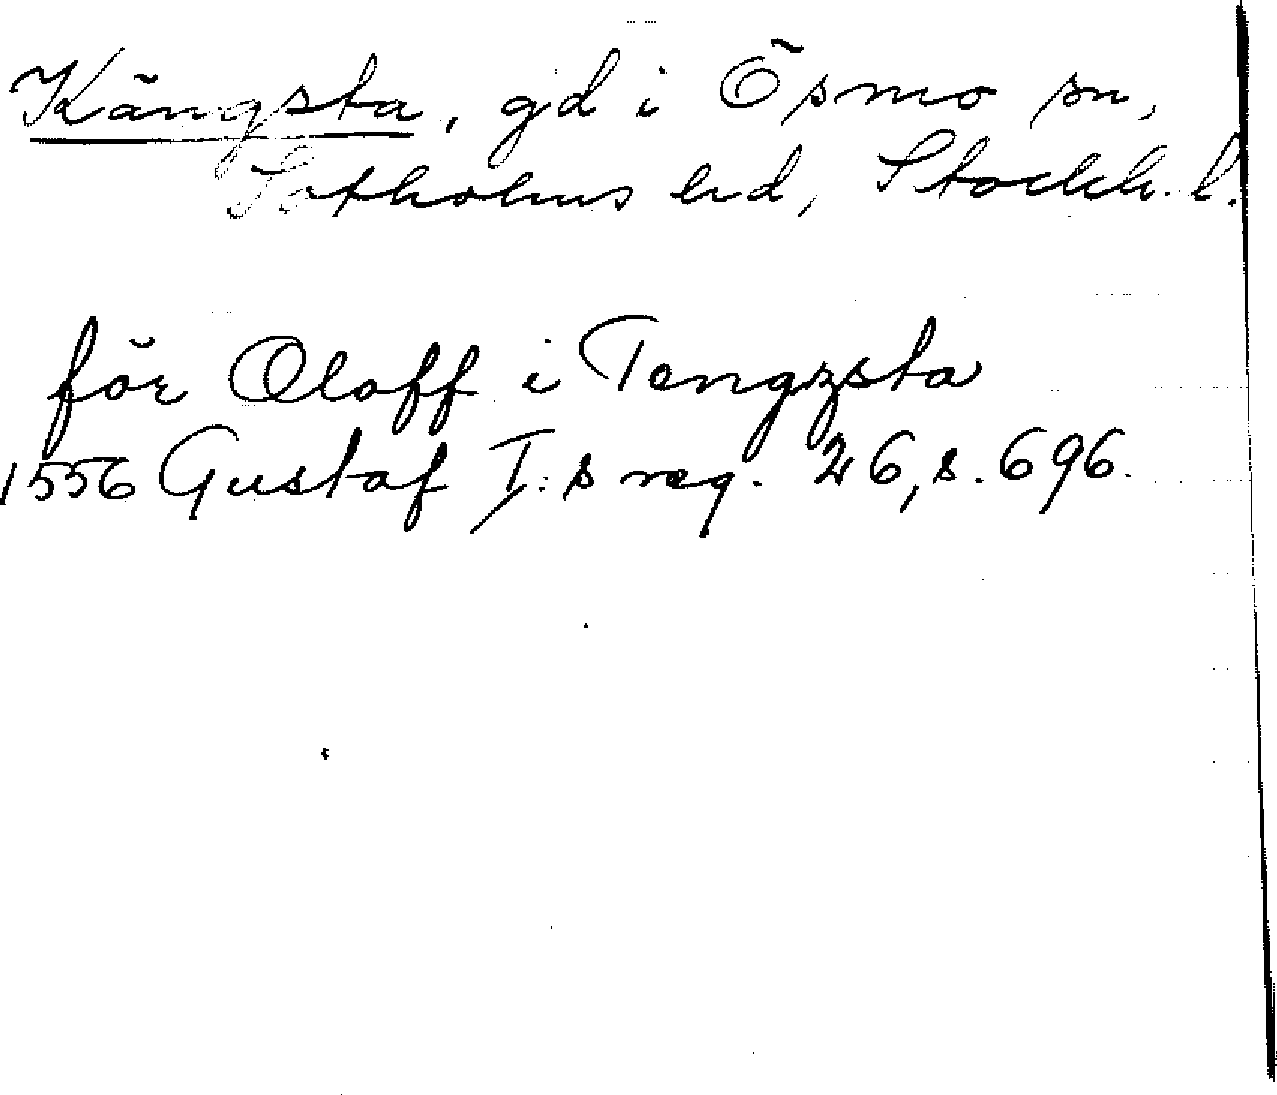 Kängsta, gd i Ösmo sn,
Sotholms hd, Stockh. l.
för Oloff i Tengzsta
1556 Gustaf I:s reg. 26, s. 696.